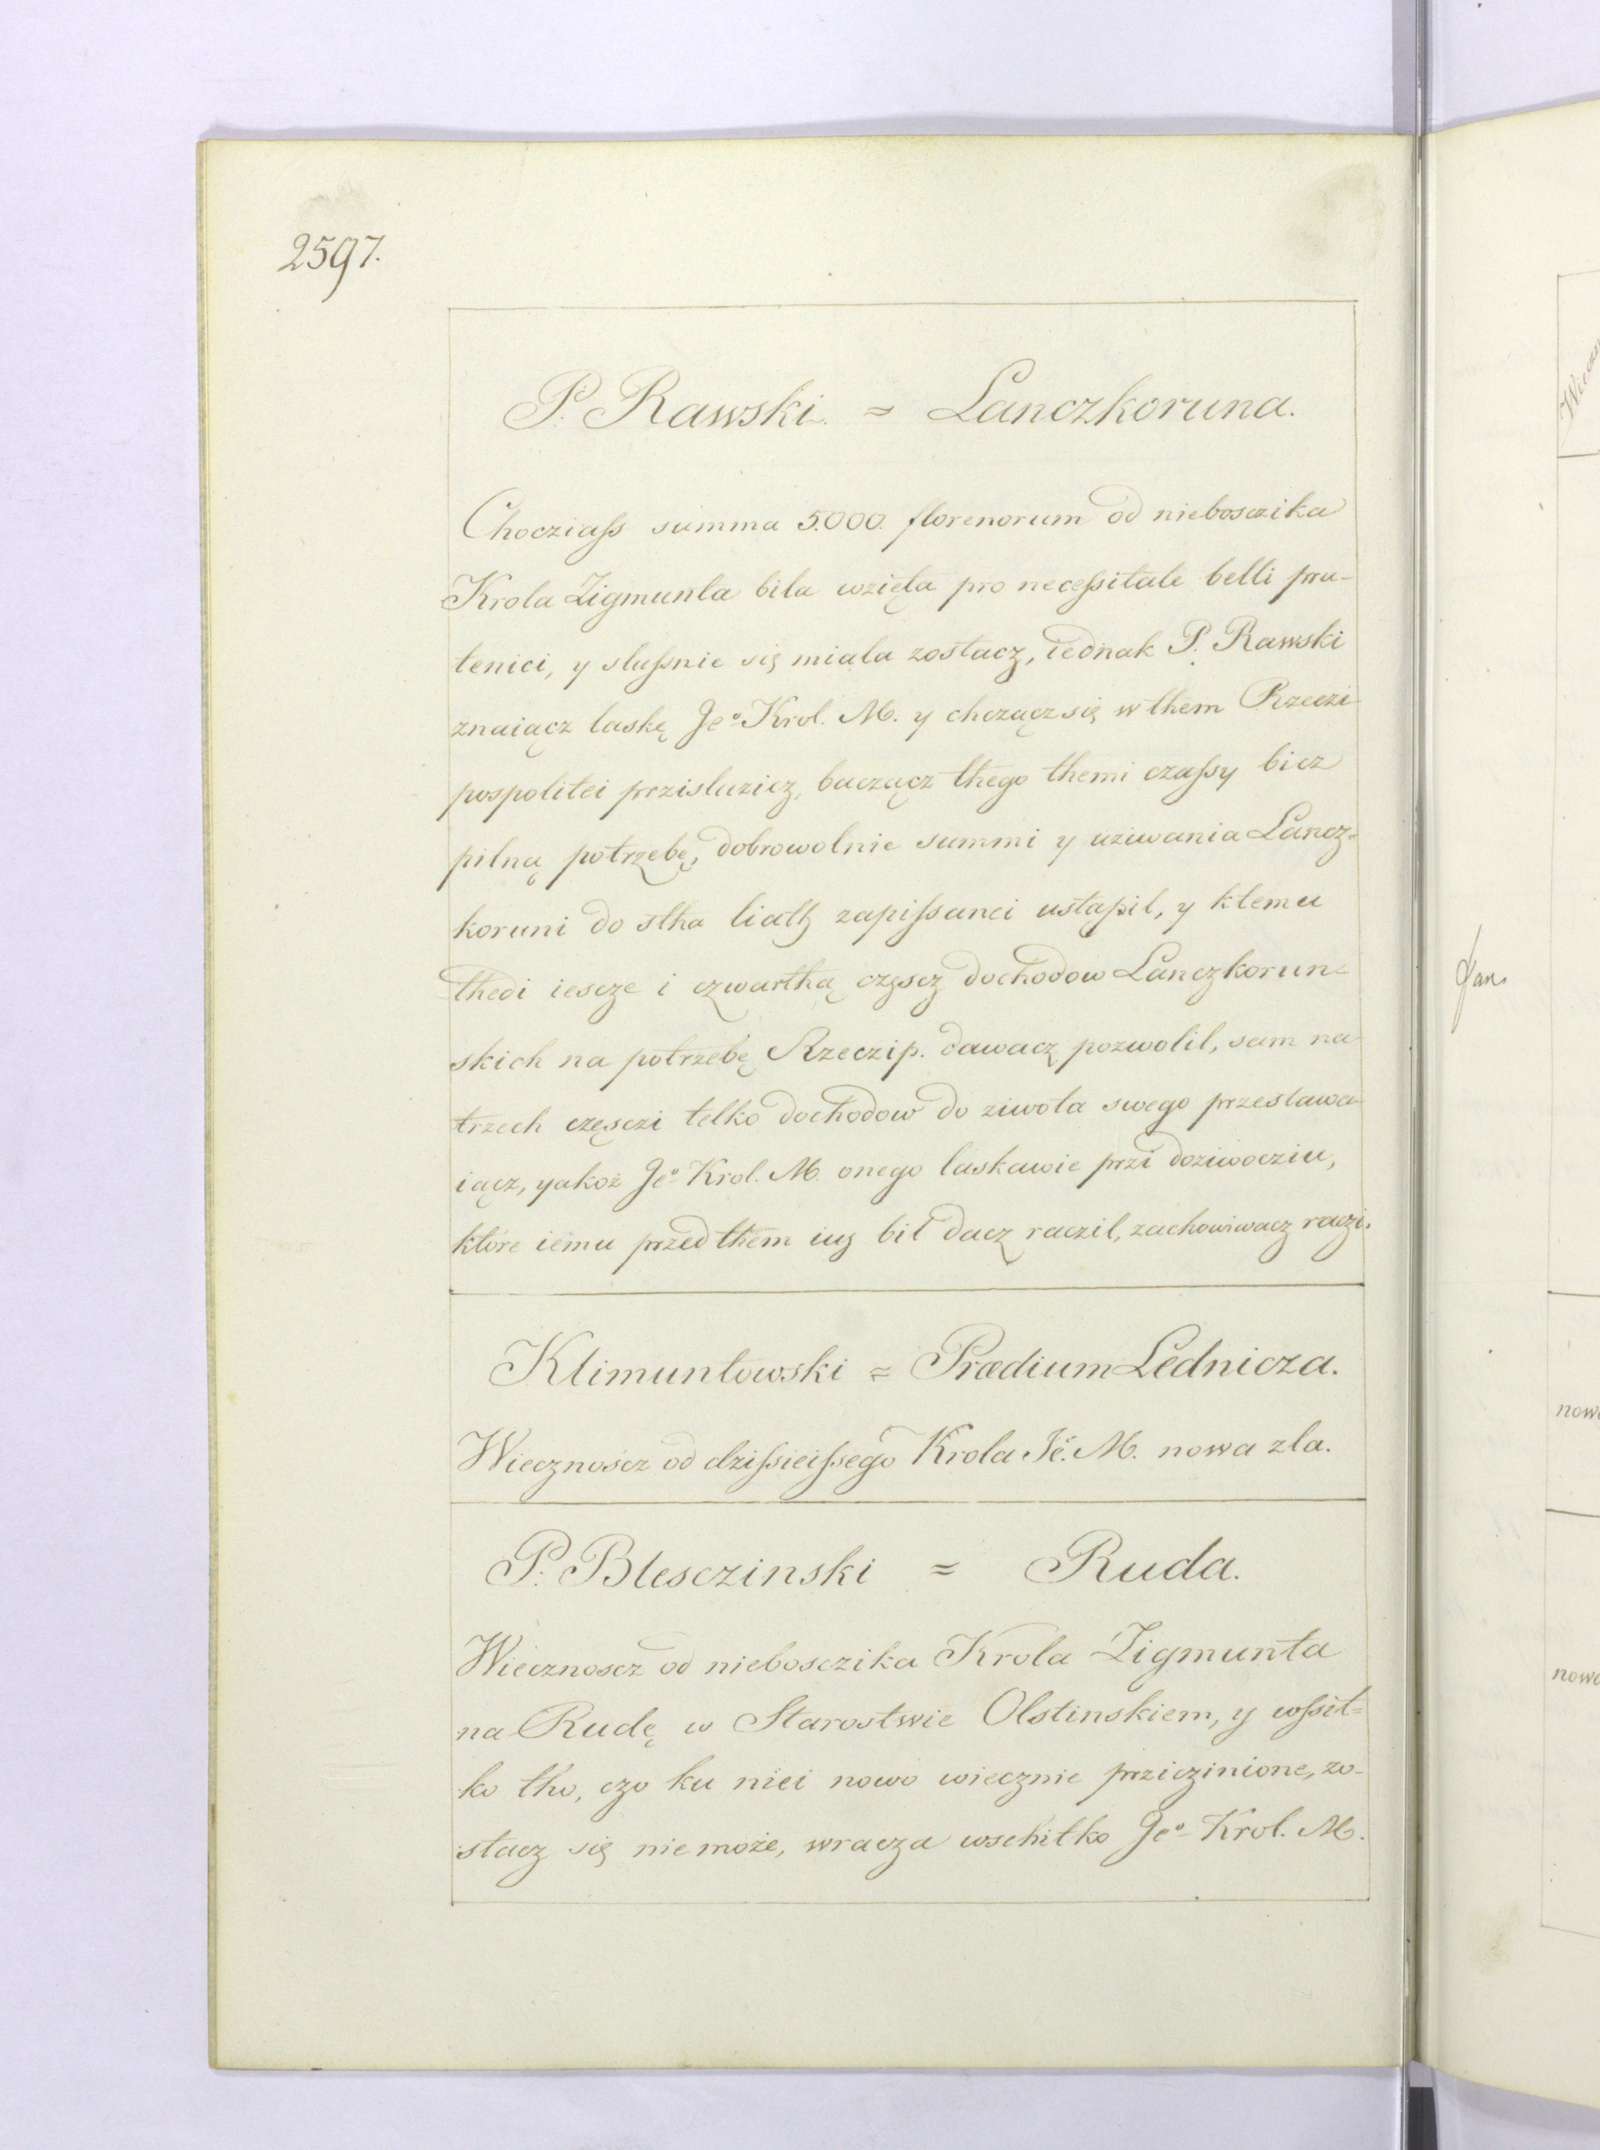 2597.
P. Rawski = Lanczkoruna.
Chocziaſs summa 5.000. florenorum od nieboszika
Krola Zigmunta bila wzięta pro neceſsitate belli pru-
tenici, y sluſsnie się miala zostacz, iednak P. Rawski
znaiącz laskę Jeo Krol. M. y chcząćz się w them Rzeczi-
pospolitei przisluzicz, baczącz thego themi czaſsy bicz
pilną potrzebę, dobrowolnie summi y uziwania Lancz-
koruni do stha liath zapiſsanei ustąpil, y ktemu
thedi iescze i czwarthą częscz dochodow Lanczkorun-
skich na potrzebę Rzeczip. dawacz pozwolil, sam na
trzech częsczi telko dochodow do ziwota swego przestawa-
iącz, yakoż Jeo Krol. M. onego laskawie przi doziwocziu,
które iemu przed them iuz bil dacz raczil, zachowiwacz raczi.
Klimuntowski = Prædium Lednicza.
Wiecznoscz od dziſsieiſsego Krola Je. M. nowa zla.
P. Blesczinski = Ruda.
Wiecznoscz od nieboszczika Krola Zigmunta
na Rudę w Starostwie Olstinskiem, y wſsit-
ko tho, czo ku niei nowo wiecznie przicziznione, zo-
stacz się nie może, wracza wschitko Jeo Krol. M.
Jan
nowo
nowo